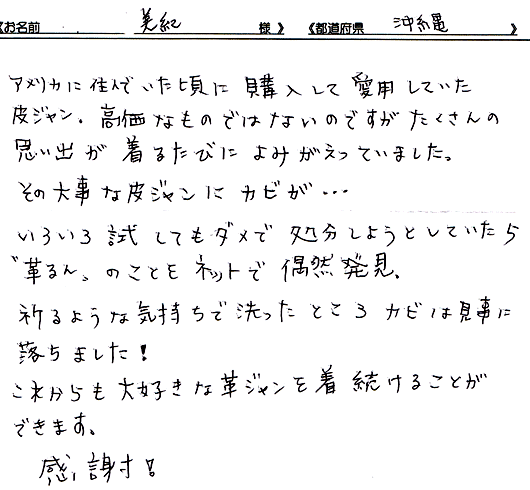 《お名前 美紀 様》 《都道府県 沖縄 》
アメリカに住んでいた頃に購入して愛用していた
皮ジャン。高価なものではないのですがたくさんの
思い出が着るたびによみがえっていました。
その大事な皮ジャンにカビが・・・
いろいろ試してもダメで処分しようとしていたら
"革るん〟のことをネットで偶然発見、
祈るような気持ちで洗ったところカビは見事に
落ちました!
これからも大好きな革ジャンを着続けることが
できます。
感謝!